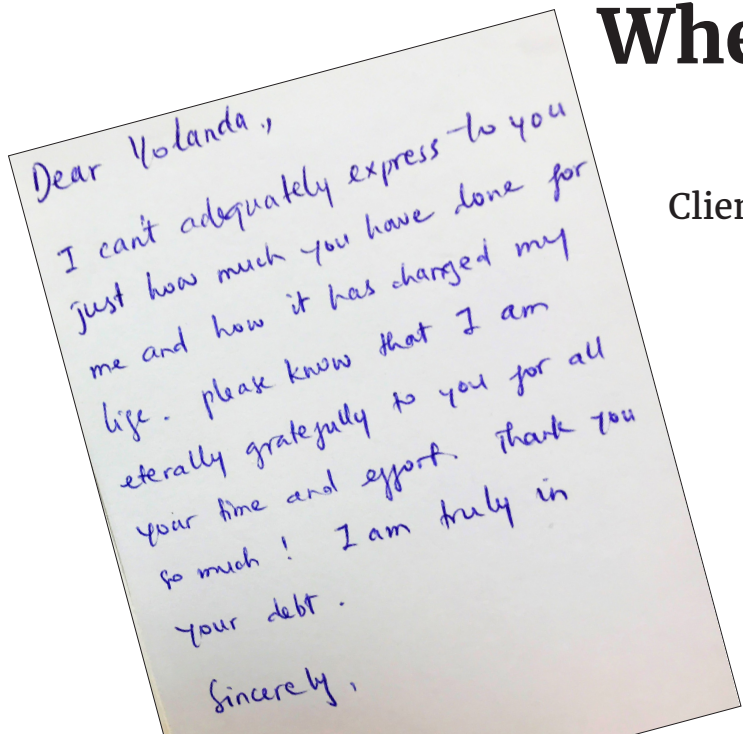 Whe
Clien
Dear Yolanda.,
I can't adequately express to you
just how much you have done for
me and how it has changed my
life. please know that I am
eterally gratefully to you for all
your time and effort. Thank you
so much! I am truly in
your debt.
Sincerely,